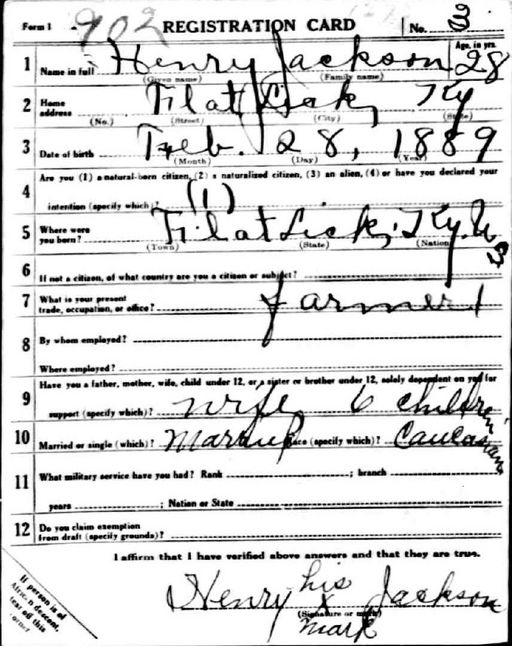 Form 1 902 REGISTRATION CARD No. 3
1 Name in full Henry Jackson Age, in yrs. 28
(Given name) (Family name)
2 Home address Flat Lick, Ky
(No.) (Street) (City) (State)
3 Date of birth Feb. 28, 1889
(Month) (Day) (Year)
4 Are you (1) a natural-born citizen, (2) a naturalized citizen, (3) an alien, (4) or have you declared your
intention (specify which)? (1)
5 Where were you born? Flat Lick, Ky. US
(Town) (State) (Nation)
6 If not a citizen, of what country are you a citizen or subject?
7 What is your present trade, occupation, or office? farmer
8 By whom employed?
Where employed?
9 Have you a father, mother, wife, child under 12, or a sister or brother under 12, solely dependent on you for
support (specify which)? wife, 6 children
10 Married or single (which)? Married Race (specify which)? Caucasian
11 What military service have you had? Rank ; branch
years ; Nation or State
12 Do you claim exemption
from draft (specify grounds)?
I affirm that I have verified above answers and that they are true.
Henry his x mark Jackson
(Signature or mark)
If person is of
African descent,
tear off this
corner